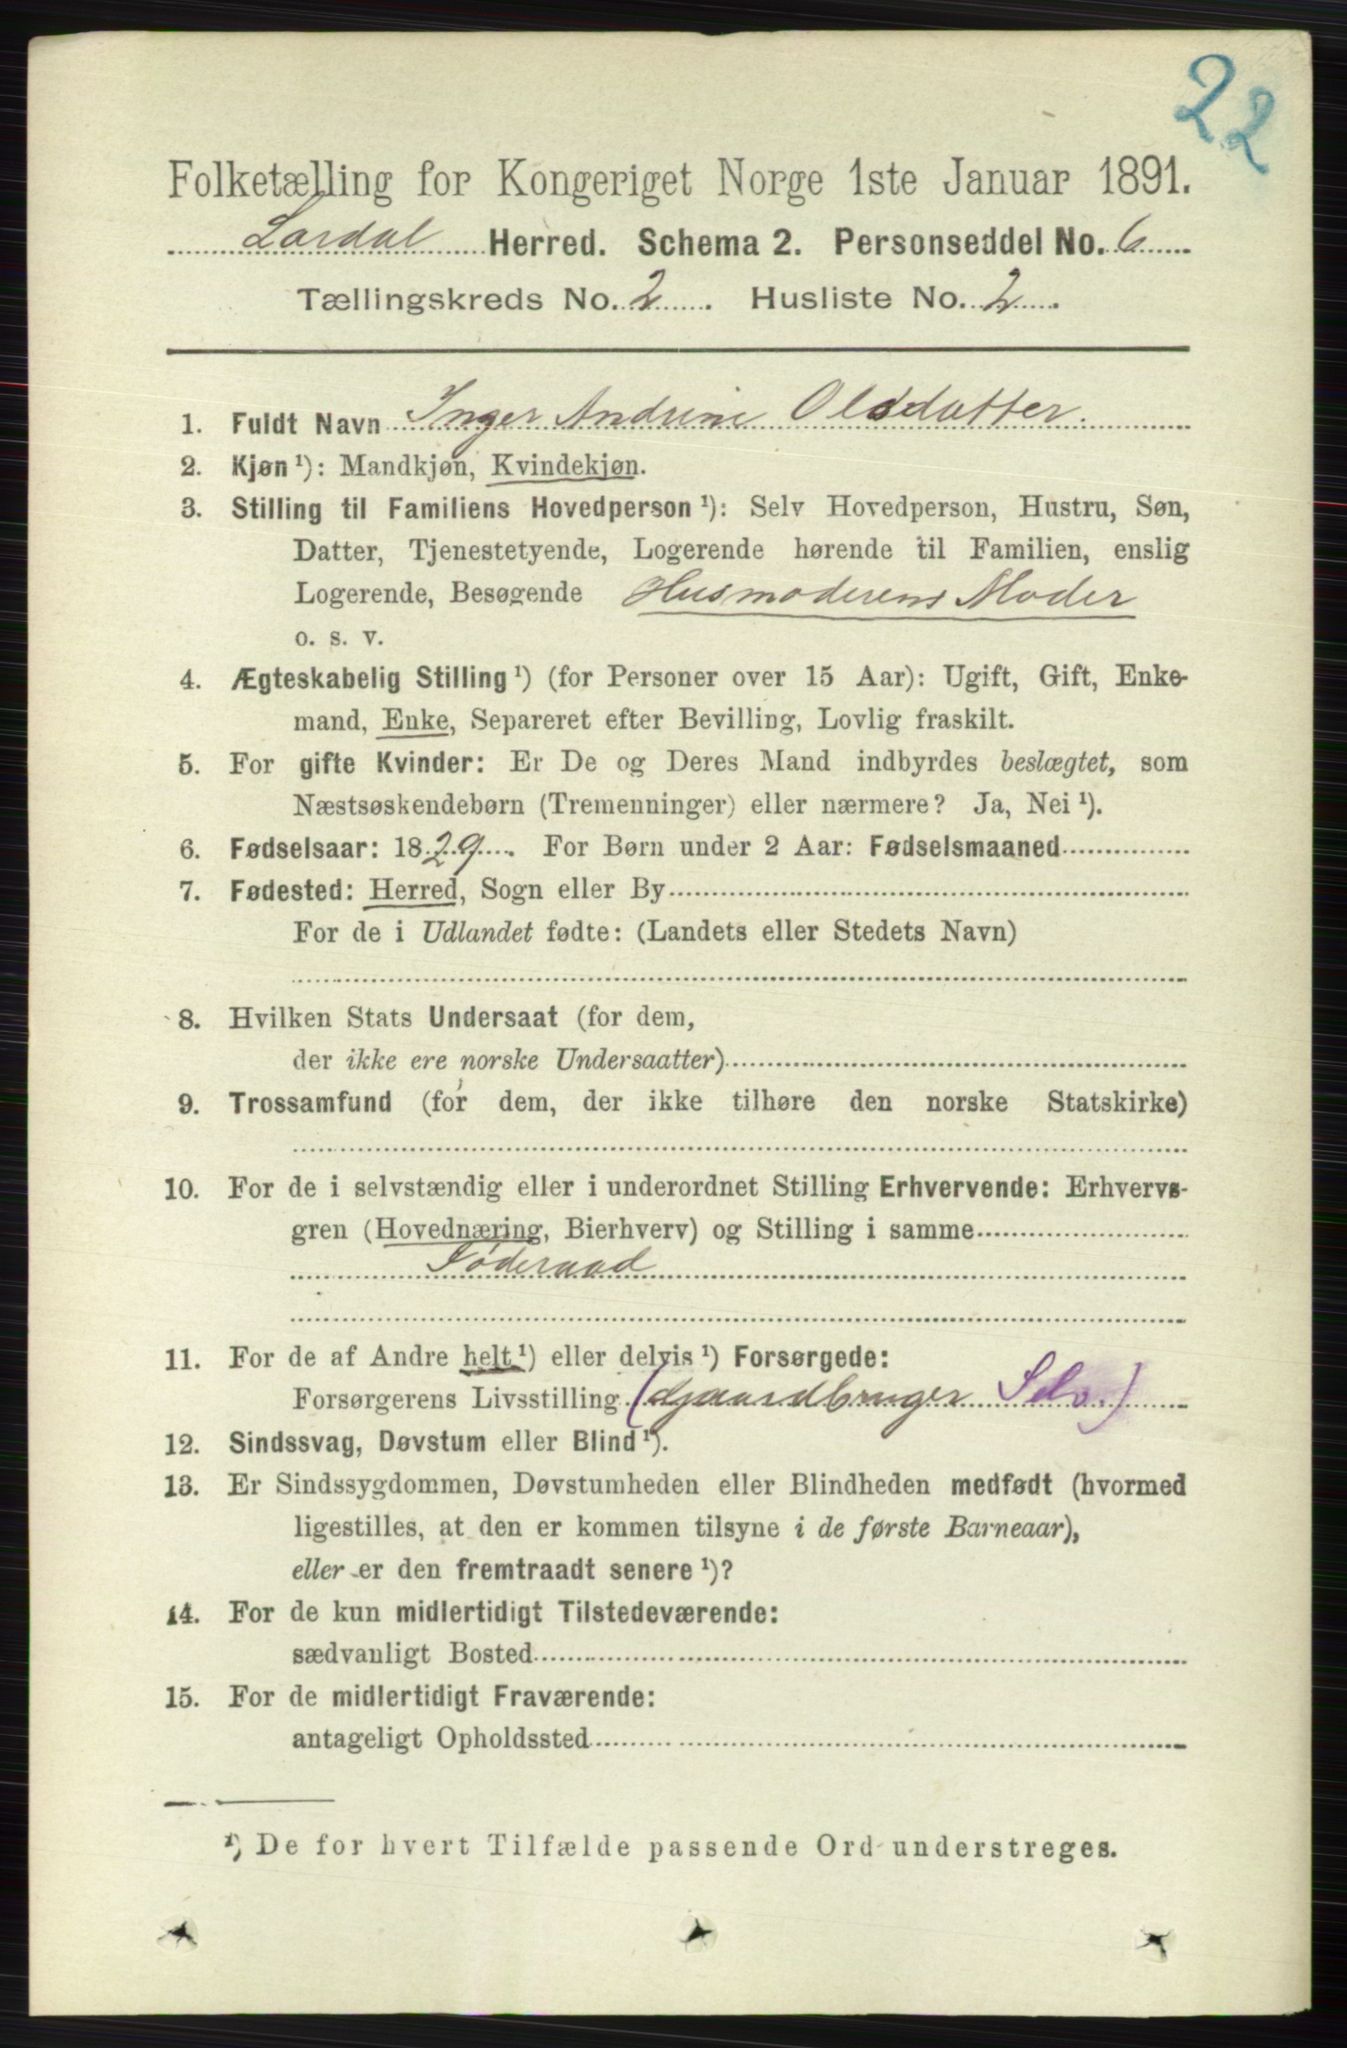 22
Folketælling for Kongeriget Norge 1ste Januar 1891.
Lardal Herred. Schema 2. Personseddel No. 6
Tællingskreds No. 2. Husliste No. 2.
1. Fuldt Navn Inger Andrine Olsdatter.
2. Kjøn ¹): Mandkjøn, Kvindekjøn.
3. Stilling til Familiens Hovedperson ¹): Selv Hovedperson, Hustru, Søn,
Datter, Tjenestetyende, Logerende hørende til Familien, enslig
Logerende, Besøgende Husmoderens Moder
o. s. v.
4. Ægteskabelig Stilling ¹) (for Personer over 15 Aar): Ugift, Gift, Enke-
mand, Enke, Separeret efter Bevilling, Lovlig fraskilt.
5. For gifte Kvinder: Er De og Deres Mand indbyrdes beslægtet, som
Næstsøskendebørn (Tremenninger) eller nærmere? Ja, Nei ¹).
6. Fødselsaar: 1829. For Børn under 2 Aar: Fødselsmaaned
7. Fødested: Herred, Sogn eller By
For de i Udlandet fødte: (Landets eller Stedets Navn)
8. Hvilken Stats Undersaat (for dem,
der ikke ere norske Undersaatter)
9. Trossamfund (for dem, der ikke tilhøre den norske Statskirke)
10. For de i selvstændig eller i underordnet Stilling Erhvervende: Erhvervs-
gren (Hovednæring, Bierhverv) og Stilling i samme
Føderaad
11. For de af Andre helt ¹) eller delvis ¹) Forsørgede:
Forsørgerens Livsstilling (Gaardbruger Selv.)
12. Sindssvag, Døvstum eller Blind ¹).
13. Er Sindssygdommen, Døvstumheden eller Blindheden medfødt (hvormed
ligestilles, at den er kommen tilsyne i de første Barneaar),
eller er den fremtraadt senere ¹)?
14. For de kun midlertidigt Tilstedeværende:
sædvanligt Bosted
15. For de midlertidigt Fraværende:
antageligt Opholdssted
¹) De for hvert Tilfælde passende Ord understreges.